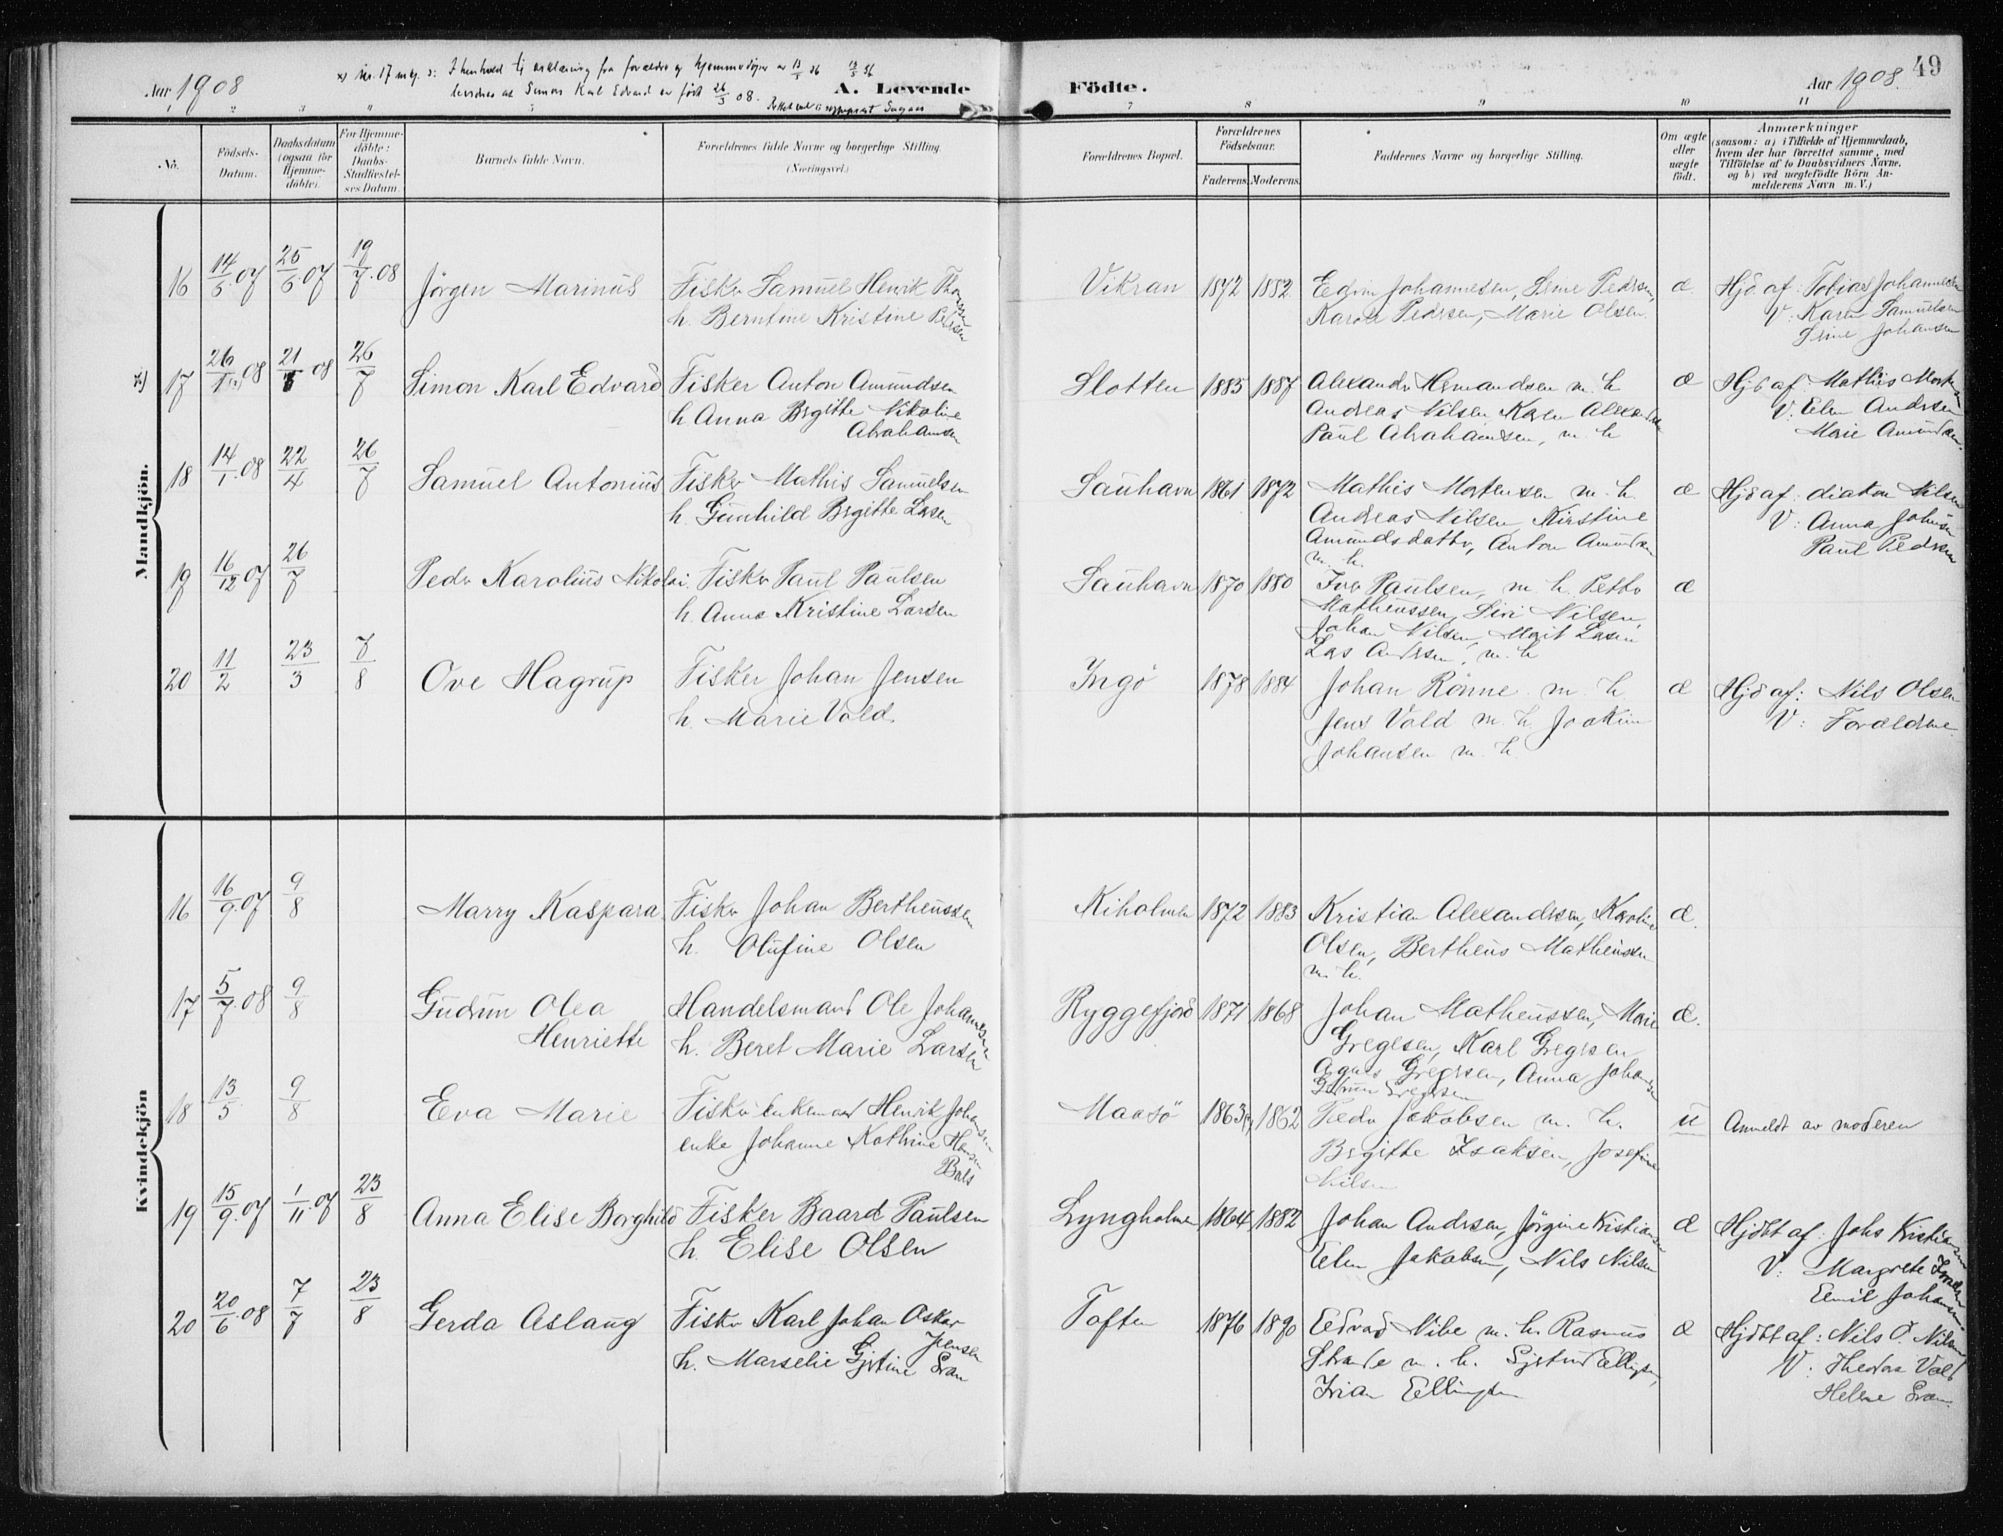 Aar 1908
A. Levende Födte.
Aar 1908.
49
Nr. 17 m.kj. :
I henhold til erklæring fra forældre og hjemmedøper av 13/5 36
Simon Karl Edvard er født 26/3 08.
No.
Födsels-Datum.
Daabsdatum (ogsaa for Hjemme-döbte).
For Hjemme-döbte: Daabs-Stadfæstel-ses Datum.
Barnets fulde Navn.
Forældrenes fulde Navne og borgerlige Stilling.
(Næringsvei.)
Forældrenes Bopæl.
Forældrenes Födselsaar.
Faderens. Moderens.
Faddernes Navne og borgerlige Stilling.
Om ægte eller uægte födt.
Anmærkninger
(saasom: a) i Tilfælde af Hjemmedaab, hvem der har forrettet samme, med Tilföielse af to Daabsvidners Navne, og b) ved uægtefödte Börn Anmelderens Navn m. V.)
Mandkjön.
16 14/5 07 25/6 07 19/7 08 Jörgen Marinus Fisker Samuel Henrik Thomsen
h. Berntine Kristine Pedersen
Vikran 1872 1882 Edvin Johannesen, Sine Pedersen,
Karen Pedersen, Marie Olsen. æ
Hjd. af: Tobias Johannesen
V: Karen Samuelsen
Sine Johansen
17 26/1 08 21/3 08 26/7 Simon Karl Edvard Fisker Anton Amundsen
h Anna Brgitte Nikoline
Abrahamsen
Slotten 1885 1887 Alexander Hermandsen m. h
Andreas Nilsen Karen Alexandersen
Paul Abrahamsen, m h æ
Hjd af: Mathis Mortensen
V: Elen Andersen
Marie Amundsen.
18 14/1 08 22/4 26/7 Samuel Antonius Fisker Mathis Samuelsen
h. Gunhild Brgitte Larsen
Sauhavn 1861 1872 Mathis Mortensen m. h.
Andreas Nilsen, Kirstine
Amundsdatter, Anton Amundsen
m. h. æ
Hjd af: diakon Nilsen
V: Anna Johnsen
Paul Pedersen
19 16/12 07 26/7 Peder Karolius Nikolai Fisker Paul Paulsen
h. Anna Kristine Larsen
Sauhavn 1870 1880 Iver Paulsen, m. h. Petter
Matheussen, Siri Nilsen,
Johan Nilsen, Marit Larsen
Lars Andersen, m. h æ
20 11/2 23/3 7/8 Ove Hagrup Fisker Johan Jensen
h. Marie Vold.
Ingö 1878 1884 Johan Rönne m. h
Jens Vold m. h. Joakim
Johansen m. h. æ
Hjd af: Nils Olsen
V: Forældrene.
Kvindekjön
16 16/9 07 9/8 Marry Kaspara Fisker Johan Bertheussen
h. Olufine Olsen
Kiholmen 1872 1883 Kristian Alexandersen, Karoline
Olsen, Bertheus Matheussen
m. h. æ.
17 5/7 08 9/8 Gudrun Olea
Henriette
Handelsmand Ole Johannesen
h. Beret Marie Larsen
Ryggefjord 1871 1868 Johan Matheussen, Marie
Gregersen, Karl Gregersen
Agnes Gregersen, Anna Johansen
Gudrun Gregersen æ.
18 13/5 9/8 Eva Marie Fisker enkemand Henrik Johansen
enke Johanne Kathrine Hansen
Bals
Maasö 1863 1862 Peder Jakobsen m. h.
Brgitte Isaksen, Josefine
Nilsen u Anmeldt av moderen
19 15/9 07 1/11 07 23/8 Anna Elise Borghild Fisker Baard Paulsen
h. Elise Olsen
Lyngholmen 1864 1882 Johan Andersen, Jörgine Kristiansen
Elen Jakobsen, Nils Nilsen æ
Hjdbt af: Johs Kristiansen
V: Margrete
Emil Johansen
20 20/6 08 7/7 23/8 Gerda Aslaug Fisker Karl Johan Oskar
Jensen
h. Marselie Gjertine Svan
Toften 1876 1890 Edvard Nibe m. h. Rasmus
Strade m. h. Sigrud Ellingsen,
Ellingsen æ
Hjdbt af: Nils O. Nilsen
V: Theodor Vold
Helene Svan.